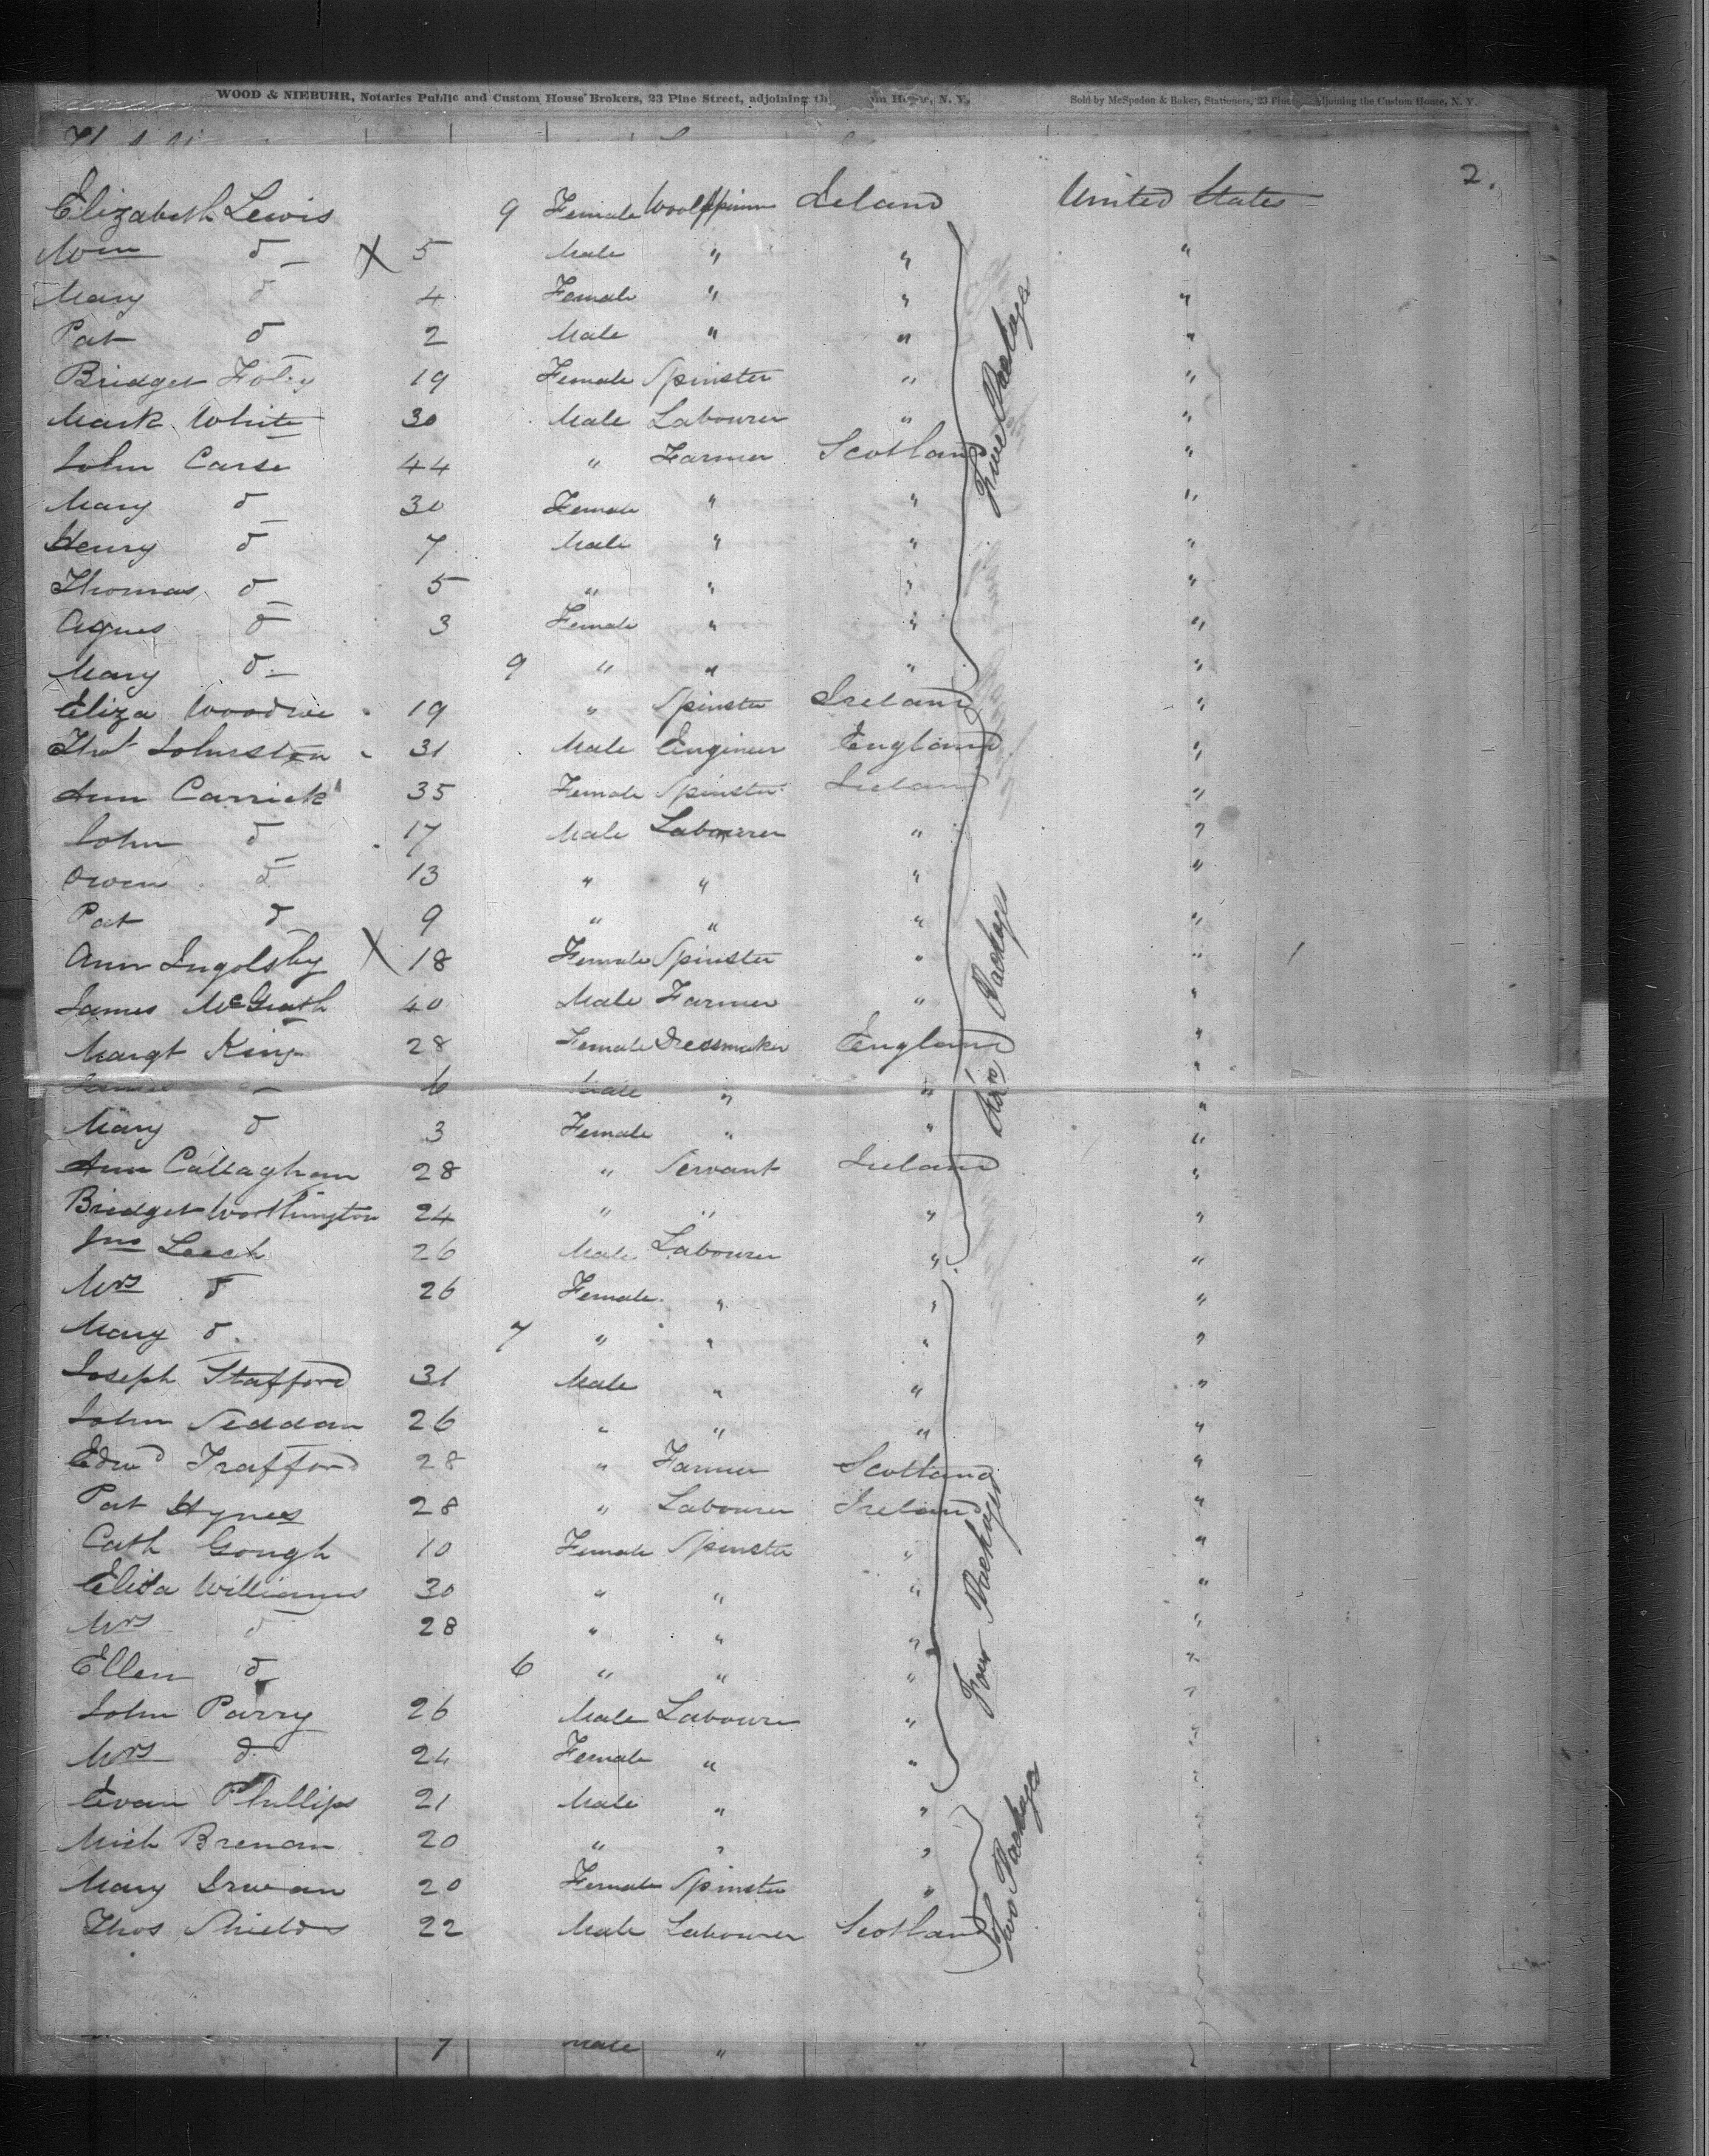 WOOD & NIEBUHR, Notaries Public and Custom House Brokers, 23 Pine Street, adjoining the Custom House, N. Y. Sold by McSpedon & Baker, Stationers, 23 Pine adjoining the Custom House, N. Y.
2.
Elizabeth Lewis 9 Female Ireland United States
Wm d 5 Male " " "
Mary d 4 Female " " "
Pat d 2 Male " " "
Bridget Foley 19 Female Spinster " "
Mark White 30 Male Labourer " "
John Carse 44 " Farmer Scotland "
Mary d 30 Female " " "
Henry d 7 Male " " "
Thomas d 5 " " " "
Agnes d 3 Female " " "
Mary d 9 " " " "
Five Packages
Eliza 19 " Spinster Ireland "
Thos Johnston 31 Male Engineer England "
Ann Carrick 35 Female Spinster Ireland "
John d 17 Male Labourer " "
Owen d 13 " " " "
Pat d 9 " " " "
Ann Ingolsby X 18 Female Spinster " "
James McGrath 40 Male Farmer " "
Margt King 28 Female Dressmaker England "
James d 6 Male " " "
Mary d 3 Female " " "
Ann Callaghan 28 " Servant Ireland "
Bridget Worthington 24 " " " "
Jno Leech 26 Male Labourer " "
Packages
Mrs d 26 Female " " "
Mary d 7 " " " "
Joseph Stafford 31 Male " " "
John Seddon 26 " " " "
Edwd Trafford 28 " Farmer Scotland "
Pat Hynes 28 " Labourer Ireland "
Cath Gough 10 Female Spinster " "
Eliza Williams 30 " " " "
Mrs d 28 " " " "
Ellen d 6 " " " "
John Parry 26 Male Labourer " "
Mrs d 24 Female " " "
Four Packages
Evan Phillips 21 Male " " "
Mich Brenan 20 " " " "
Mary Irwan 20 Female Spinster " "
Thos Shields 22 Male Labourer Scotland "
Two Packages
7 Male " "